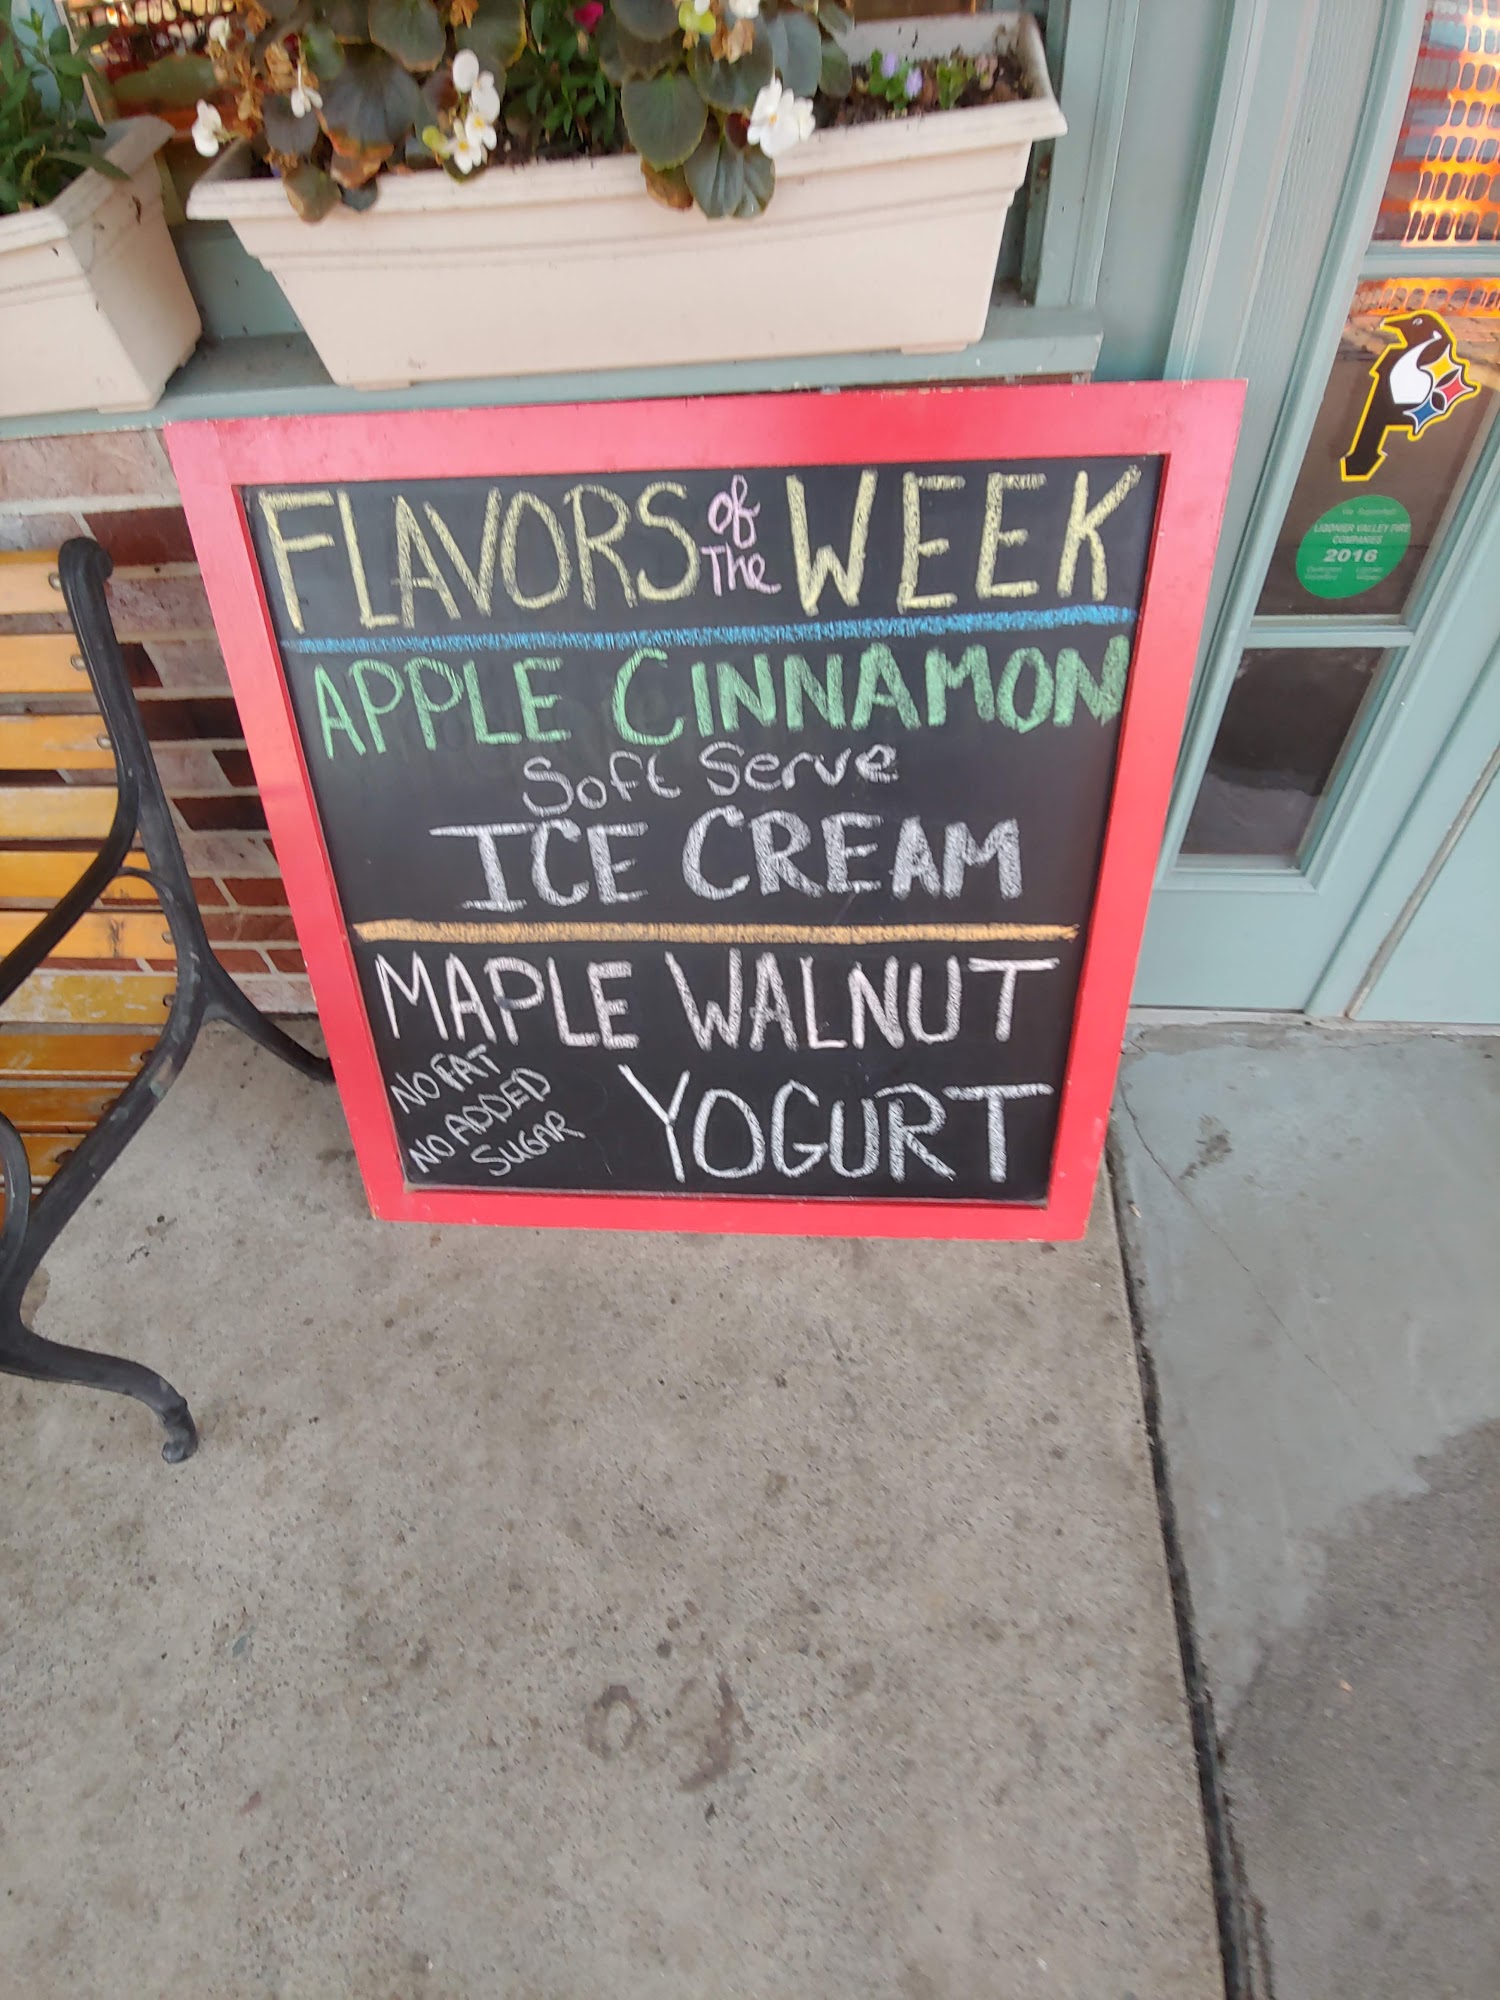 FLAVORS of The WEEK
APPLE CINNAMON
Soft Serve
ICE CREAM
MAPLE WALNUT
NO FAT
NO ADDED
SUGAR
YOGURT
LIGONIER VALLEY FIRE
COMPANIES
2016